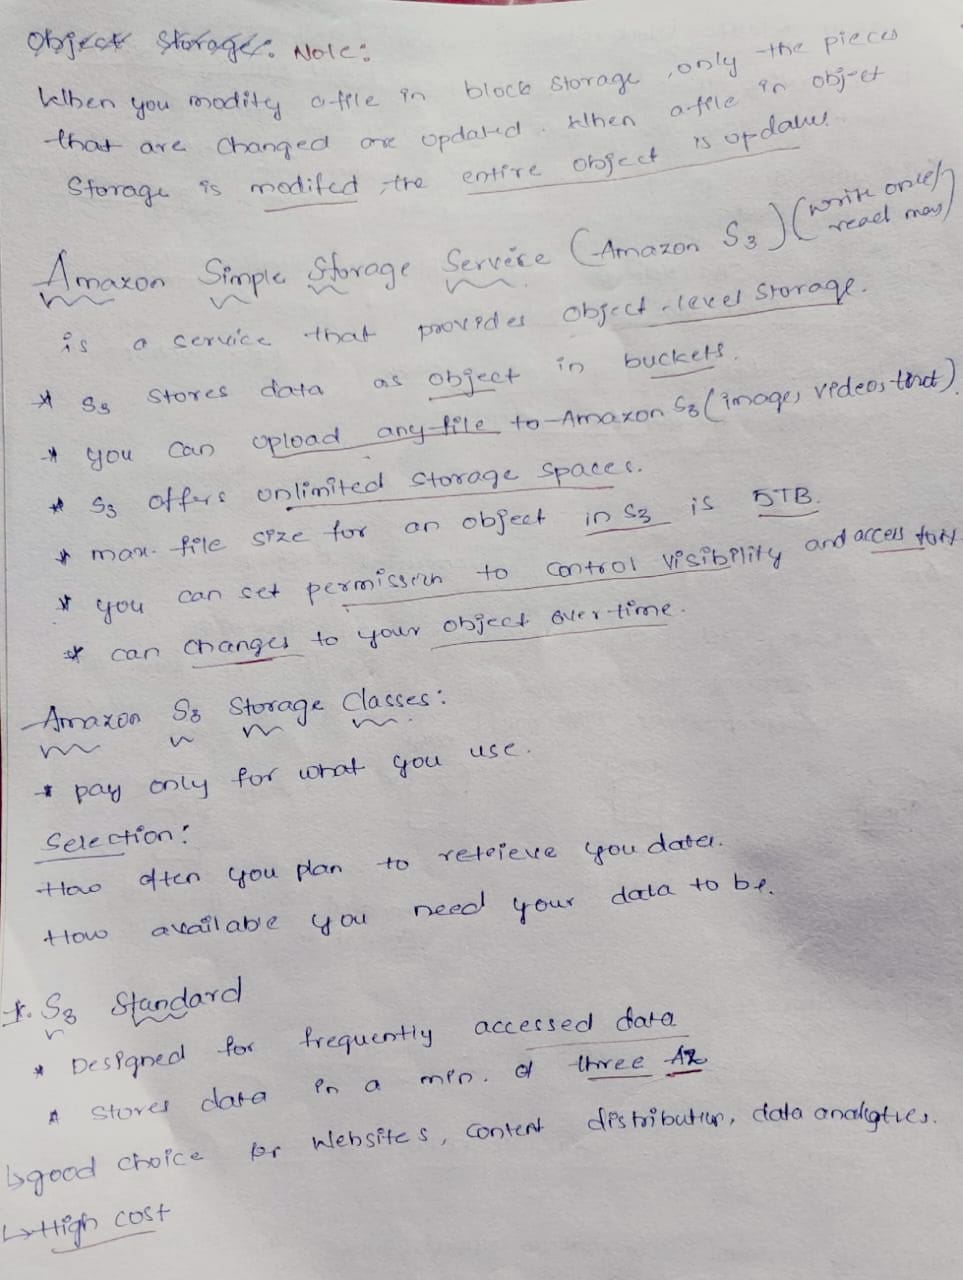 Object Storage: Note:
When you modify a file in block storage, only the pieces
that are changed are updated. When a file in object
Storage is modifed, the entire object is updates.
Amazon Simple Storage Service (Amazon S3) (write once/
read many)
is a service that provides object-level storage.
* S3 stores data as object in buckets.
* you can upload any file to Amazon S3 (images, videos, text)
* S3 offers unlimited storage spaces.
* max. file size for an object in S3 is 5TB.
* you can set permission to control visibility and access to it
* can changes to your object over time.
Amazon S3 Storage Classes:
* pay only for what you use.
Selection:
How often you plan to retrieve you data.
How available you need your data to be.
1. S3 Standard
* Designed for frequently accessed data
* stores data in a min. of three AZ
↳ good choice for Websites, content distribution, data analytics.
↳ High cost